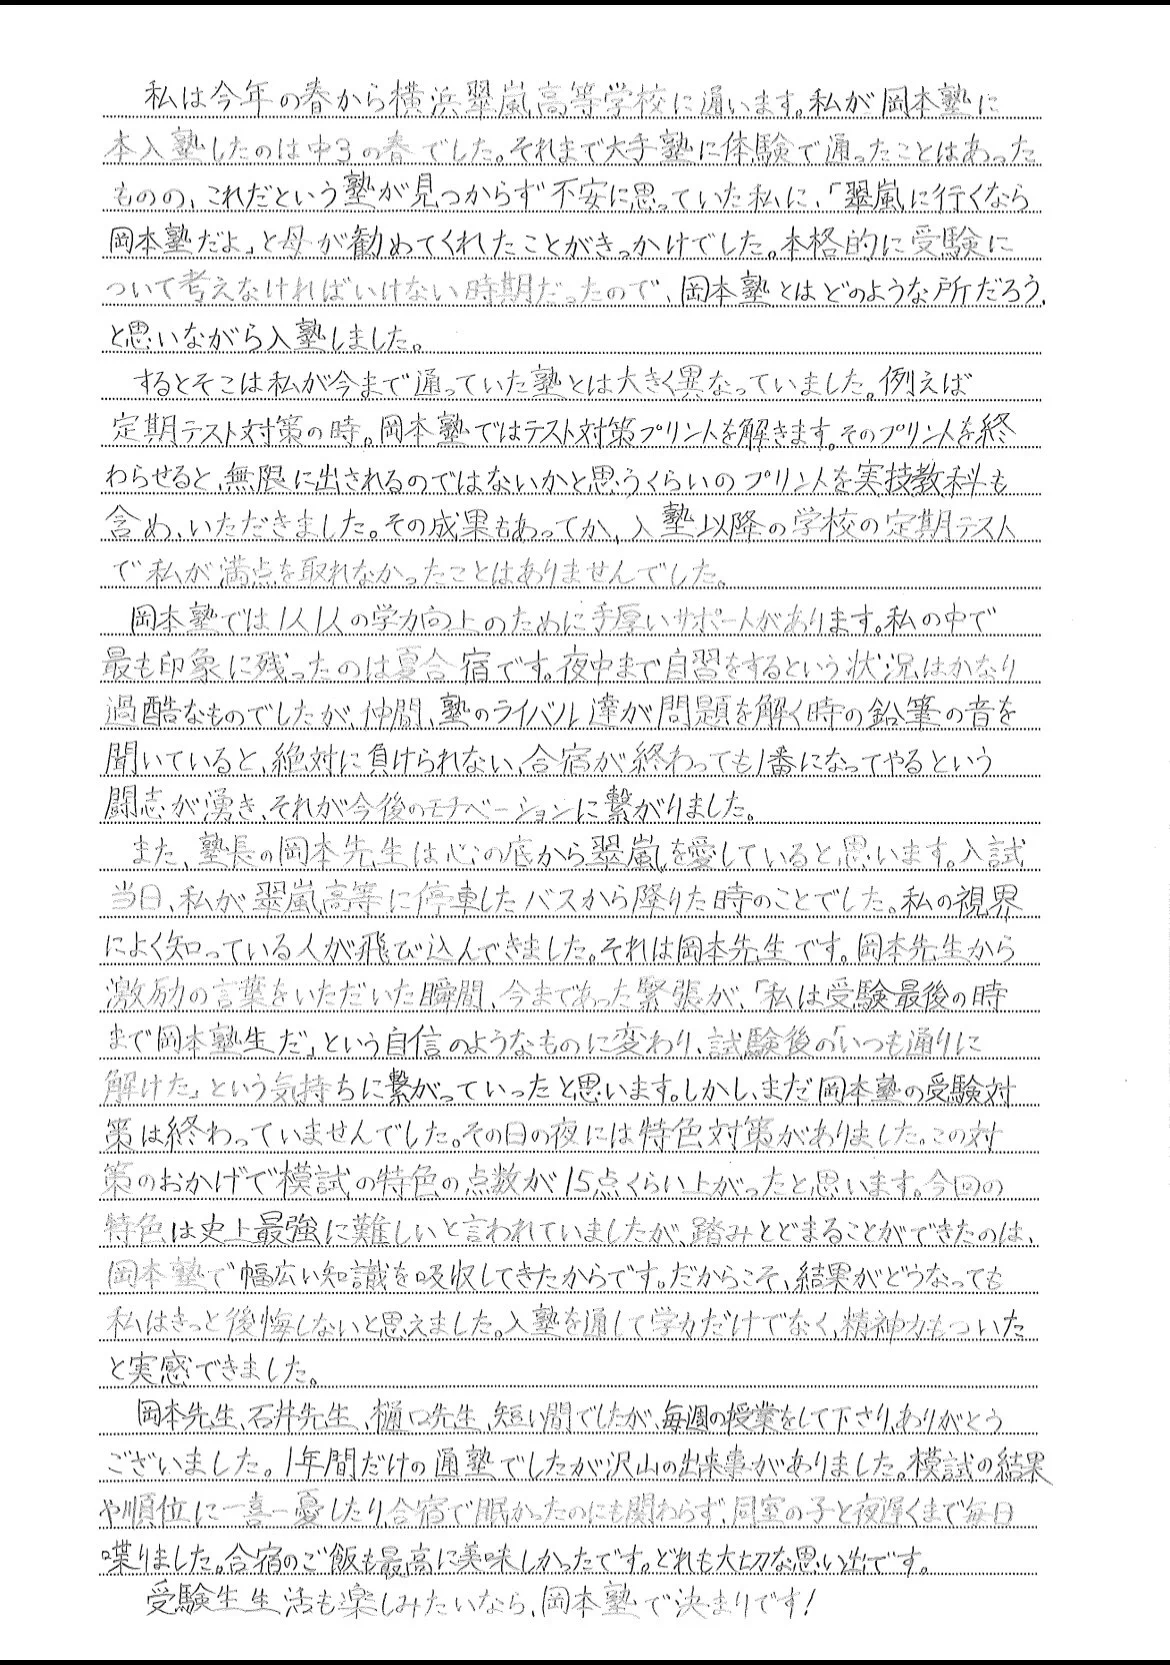 私は今年の春から横浜翠嵐高等学校に通います。私が岡本塾に
本入塾したのは中3の春でした。それまで大手塾に体験で通ったことはあった
ものの、これだという塾が見つからず不安に思っていた私に、「翠嵐に行くなら
岡本塾だよ」と母が勧めてくれたことがきっかけでした。本格的に受験に
ついて考えなければいけない時期だったので、岡本塾とはどのような所だろう、
と思いながら入塾しました。
するとそこは私が今まで通っていた塾とは大きく異なっていました。例えば
定期テスト対策の時。岡本塾ではテスト対策プリントを解きます。そのプリントを終
わらせると、無限に出されるのではないかと思うくらいのプリントを実技教科も
含め、いただきました。その成果もあってか、入塾以降の学校の定期テスト
で私が満点を取れなかったことはありませんでした。
岡本塾では1人1人の学力向上のために手厚いサポートがあります。私の中で
最も印象に残ったのは夏合宿です。夜中まで自習をするという状況はかなり
過酷なものでしたが、仲間、塾のライバル達が問題を解く時の鉛筆の音を
聞いていると、絶対に負けられない、合宿が終わっても1番になってやるという
闘志が湧き、それが今後のモチベーションに繋がりました。
また、塾長の岡本先生は心の底から翠嵐を愛していると思います。入試
当日、私が翠嵐高等に停車したバスから降りた時のことでした。私の視界
によく知っている人が飛び込んできました。それは岡本先生です。岡本先生から
激励の言葉をいただいた瞬間、今まであった緊張が、「私は受験最後の時
まで岡本塾生だ」という自信のようなものに変わり、試験後の「いつも通りに
解けた」という気持ちに繋がっていったと思います。しかし、まだ岡本塾の受験対
策は終わっていませんでした。その日の夜には特色対策がありました。この対
策のおかげで模試の特色の点数が15点くらい上がったと思います。今回の
特色は史上最強に難しいと言われていましたが、踏みとどまることができたのは、
岡本塾で幅広い知識を吸収してきたからです。だからこそ、結果がどうなっても
私はきっと後悔しないと思えました。入塾を通して学力だけでなく、精神力もついた
と実感できました。
岡本先生、石井先生、樋口先生、短い間でしたが、毎週の授業をして下さり、ありがとう
ございました。1年間だけの通塾でしたが沢山の出来事がありました。模試の結果
や順位に一喜一憂したり、合宿で眠かったのにも関わらず、同室の子と夜遅くまで毎日
喋りました。合宿のご飯も最高に美味しかったです。どれも大切な思い出です。
受験生生活も楽しみたいなら、岡本塾で決まりです!